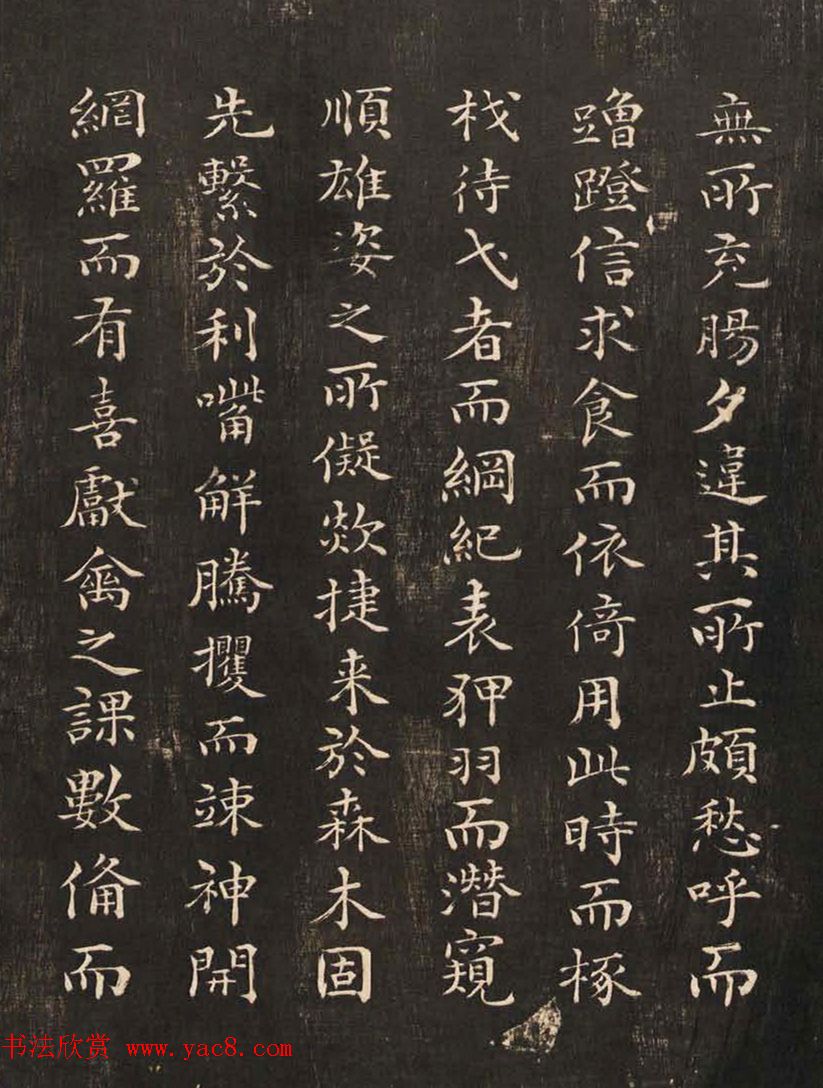 無所充腸夕違其所止頗愁呼而
蹭蹬信求食而依倚用此時而椓
杙待弋者而綱紀表狎羽而潛窺
順雄姿之所儗欻捷来於森木固
先繫於利嘴解騰攫而竦神開
網羅而有喜獻禽之課數俻而
书法欣赏 www.yac8.com